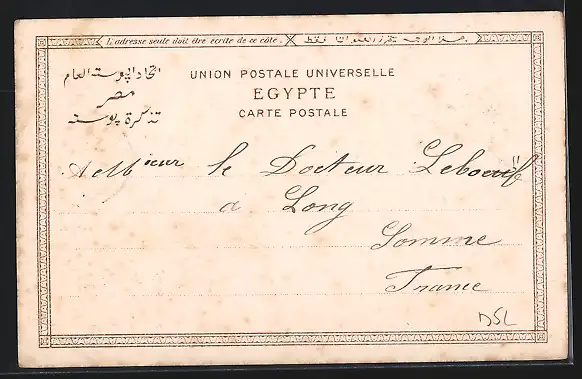 L'adresse seule doit être écrite de ce côté.
هذا الوجه يحرر العنوان فقط
اتحاد البوسته العام
مصر
تذكرة بوسته
UNION POSTALE UNIVERSELLE
EGYPTE
CARTE POSTALE
A Msieur le Docteur Leboeuf
à Long
Somme
France
DSL